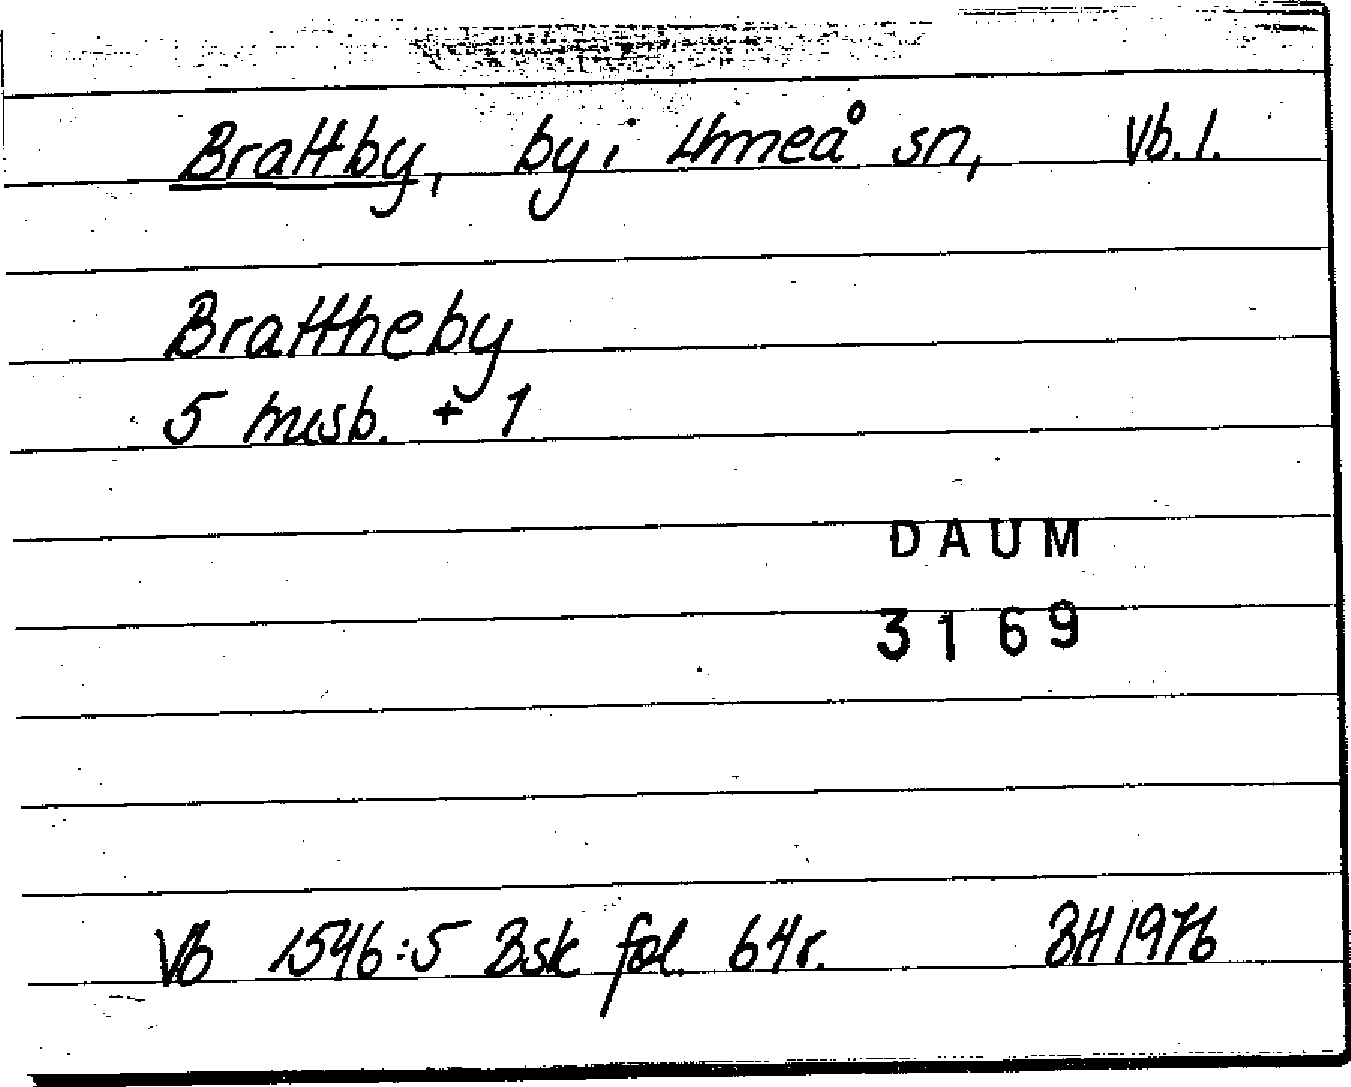 Brattby, by, Umeå sn, Vb. l.
Brattheby
5 misb. + 1
DAUM
3169
Vb 1546:5 Bsk fol. 64r. BH 1976